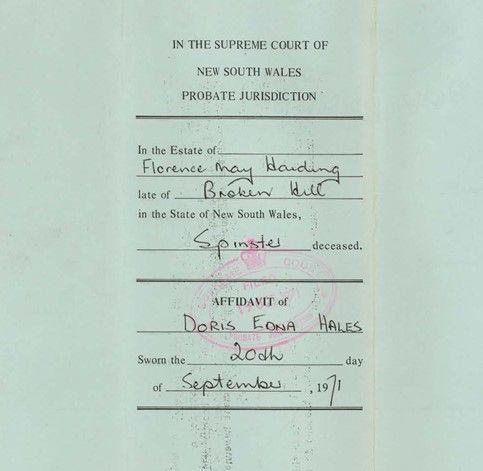 IN THE SUPREME COURT OF
NEW SOUTH WALES
PROBATE JURISDICTION
In the Estate of
Florence May Harding
late of Broken Hill
in the State of New South Wales,
Spinster deceased.
SUPREME COURT
FILED
AFFIDAVIT of
PROBATE
DORIS EDNA HALES
Sworn the 20th day
of September, 1971